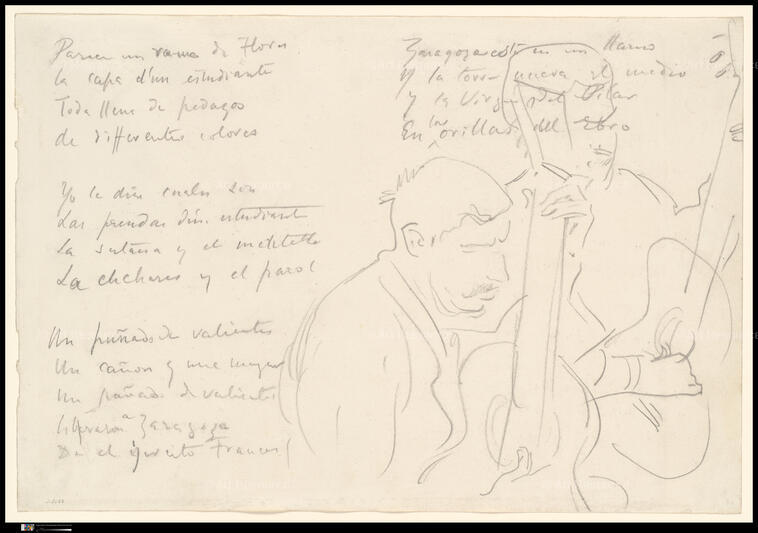 Parece un ramo de Flores
la capa d'un estudiante
Toda llena de pedazos
de differentes colores
Yo le diré cuales son
Las prendas d'un estudiante
La sotana y el
La chchara y el farol
Un puñado de valientes
Un cañon y una mujer
Un puñado de valientes
liberaron a Zaragoza
De el ejercito Frances
Zaragoza esta en un llano
Y la torre nueva el medio
Y la Virgen del Pilar
En las orillas del Ebro